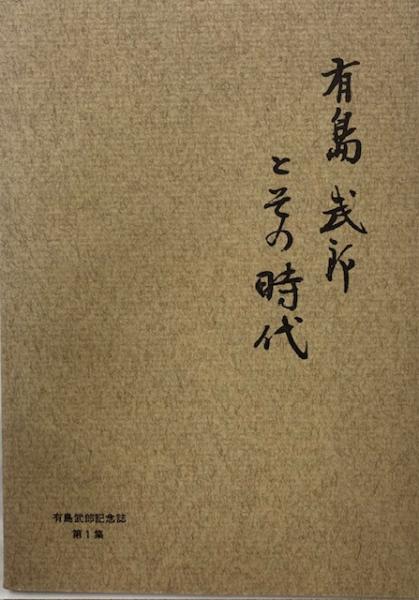 有島武郎
とその時代
有島武郎記念誌
第1集